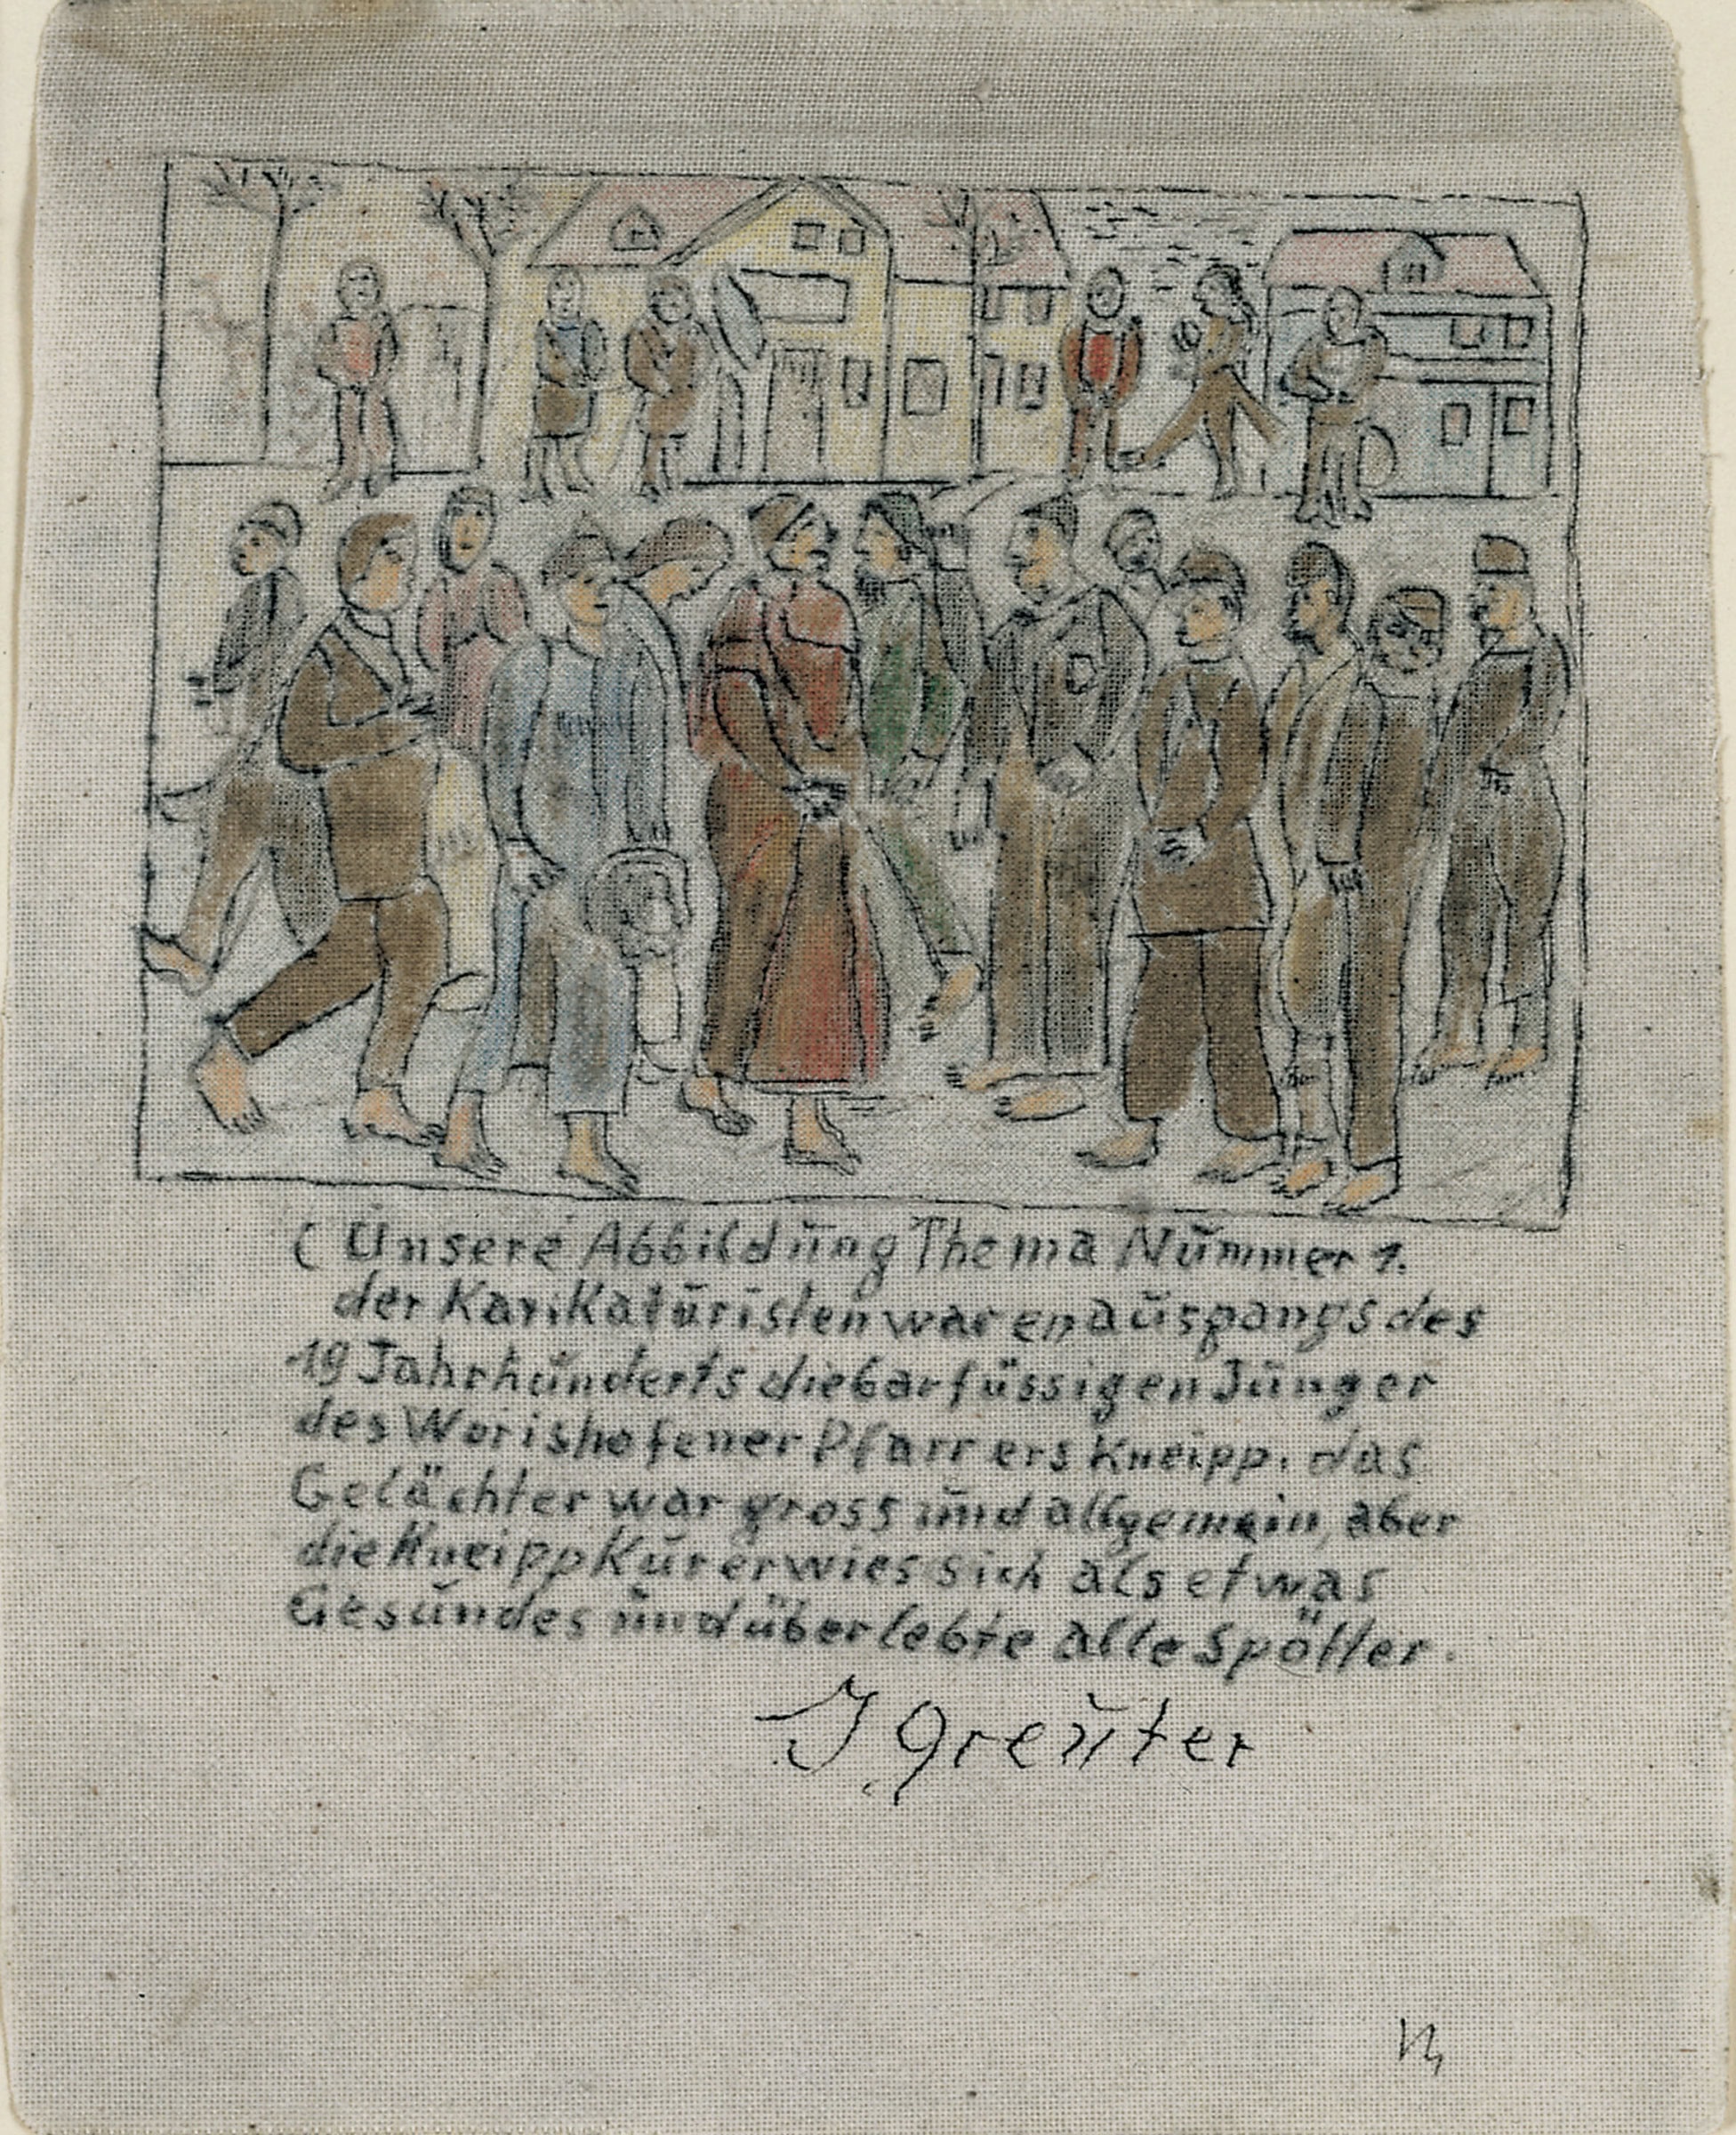 ( Unsere Abbildung Thema Nummer 1.
der Karikaturisten waren ausgangs des
19 Jahrhunderts die barfüssigen Jünger
des Worishofener Pfarrers Kneipp. das
Gelächter war gross und allgemein, aber
die Kneipp Kur erwies sich als etwas
Gesundes und überlebte alle Spötter.
J greuter